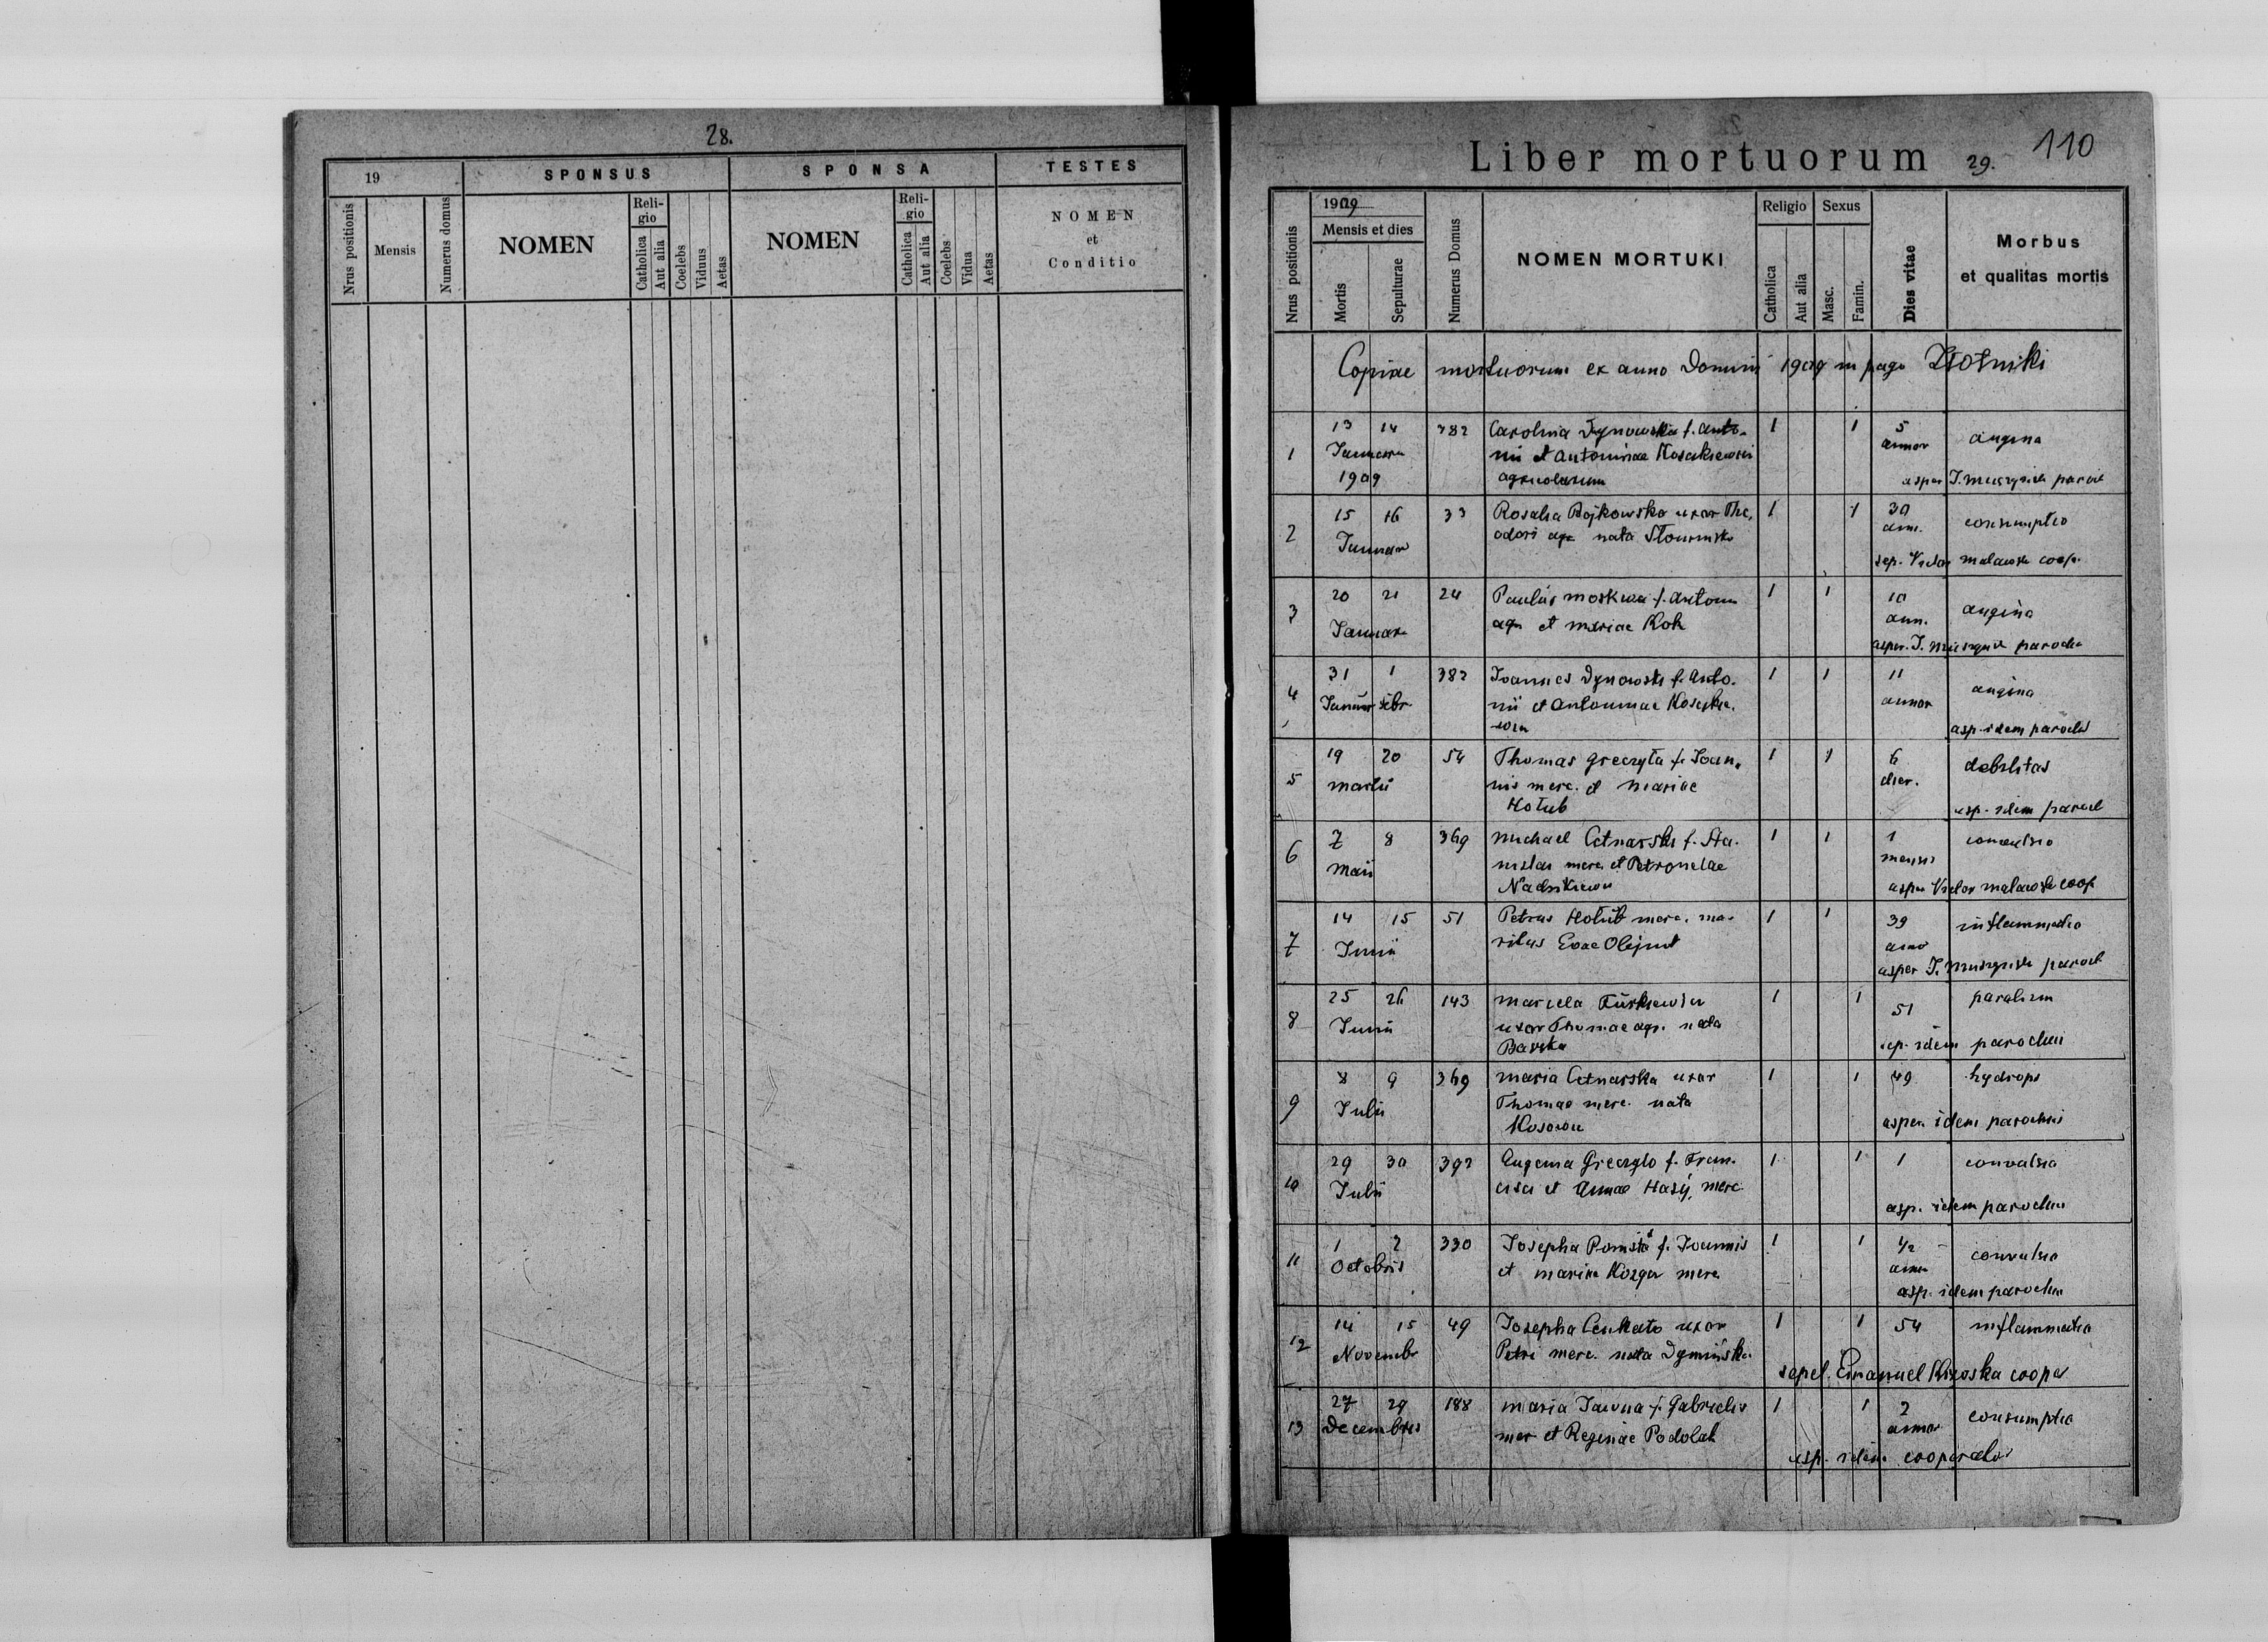 28.
19
SPONSUS
SPONSA
TESTES
Nrus positionis
Mensis
Numerus domus
NOMEN
Reli-
gio
Catholica
Aut alia
Coelebs
Viduus
Aetas
NOMEN
Reli-
gio
Catholica
Aut alia
Coelebs
Vidua
Aetas
NOMEN
et
Conditio
Liber mortuorum 29. 110
Nrus positionis
1909
Mensis et dies
Mortis
Sepulturae
Numerus Domus
NOMEN MORTUKI
Religio
Catholica
Aut alia
Sexus
Masc.
Famin.
Dies vitae
Morbus
et qualitas mortis
Copiae mortuorum ex anno Domini 1909 in pago Złotniki
13 14 382 Carolina Dynowska f. Anto- 1 1 5
1 nii et Antoninae annor angina
1909 agricolarum
15 16 33 Rosalia Bojkowska uxor The, 1 1 30
2 odori agr nata ann. consumptio
sep. Victor Malawski coop.
20 21 24 Paulus Moskwa f. Antoni 1 1 10
3 agr et Mariae Kok ann. angina
31 1 382 Ioannes Dynowski f. Anto. 1 1 11
4 nii et Antoninae annor angina
asp. idem paroch
19 20 54 Thomas Greczyła f. Ioan. 1 1 6 debilitas
5 Martii nis merc. et Mariae dier.
Hołub asp. idem paroch
7 8 369 Michael Cetnarski f. Sta. 1 1 1 convulsio
6 Maii nislai merc et Petronelae mensis
asper Victor Malawski coop
14 15 51 Petrus Hołub merc. ma- 1 1 39 inflammatio
7 Junii ritus Evae Olejnik
25 26 143 Marcela 1 1 51
8 Junii uxor Thomae agr. nata
Barska sep. idem parochus
8 9 369 Maria Cetnarska uxor 1 1 49 hydrops
9 Julii Thomae merc. nata
asper. idem parochus
29 30 392 Eugenia Greczylo f. Fran. 1 1 1 convulsio
10 Julii cisci et Annae merc.
asp. idem parochus
1 2 330 Josepha f. Joannis 1 1 1/2 convulsio
11 Octobris et Mariae merc
asp. idem parochus
14 15 49 Josepha uxor 1 1 54 inflammatio
12 Novembr Petri merc. nata
sepel. Emanuel coope
27 29 188 Maria f. Gabrielis 1 1 2 consumptio
13 Decembris mer et Reginae Podolak annor
asp. idem cooperator